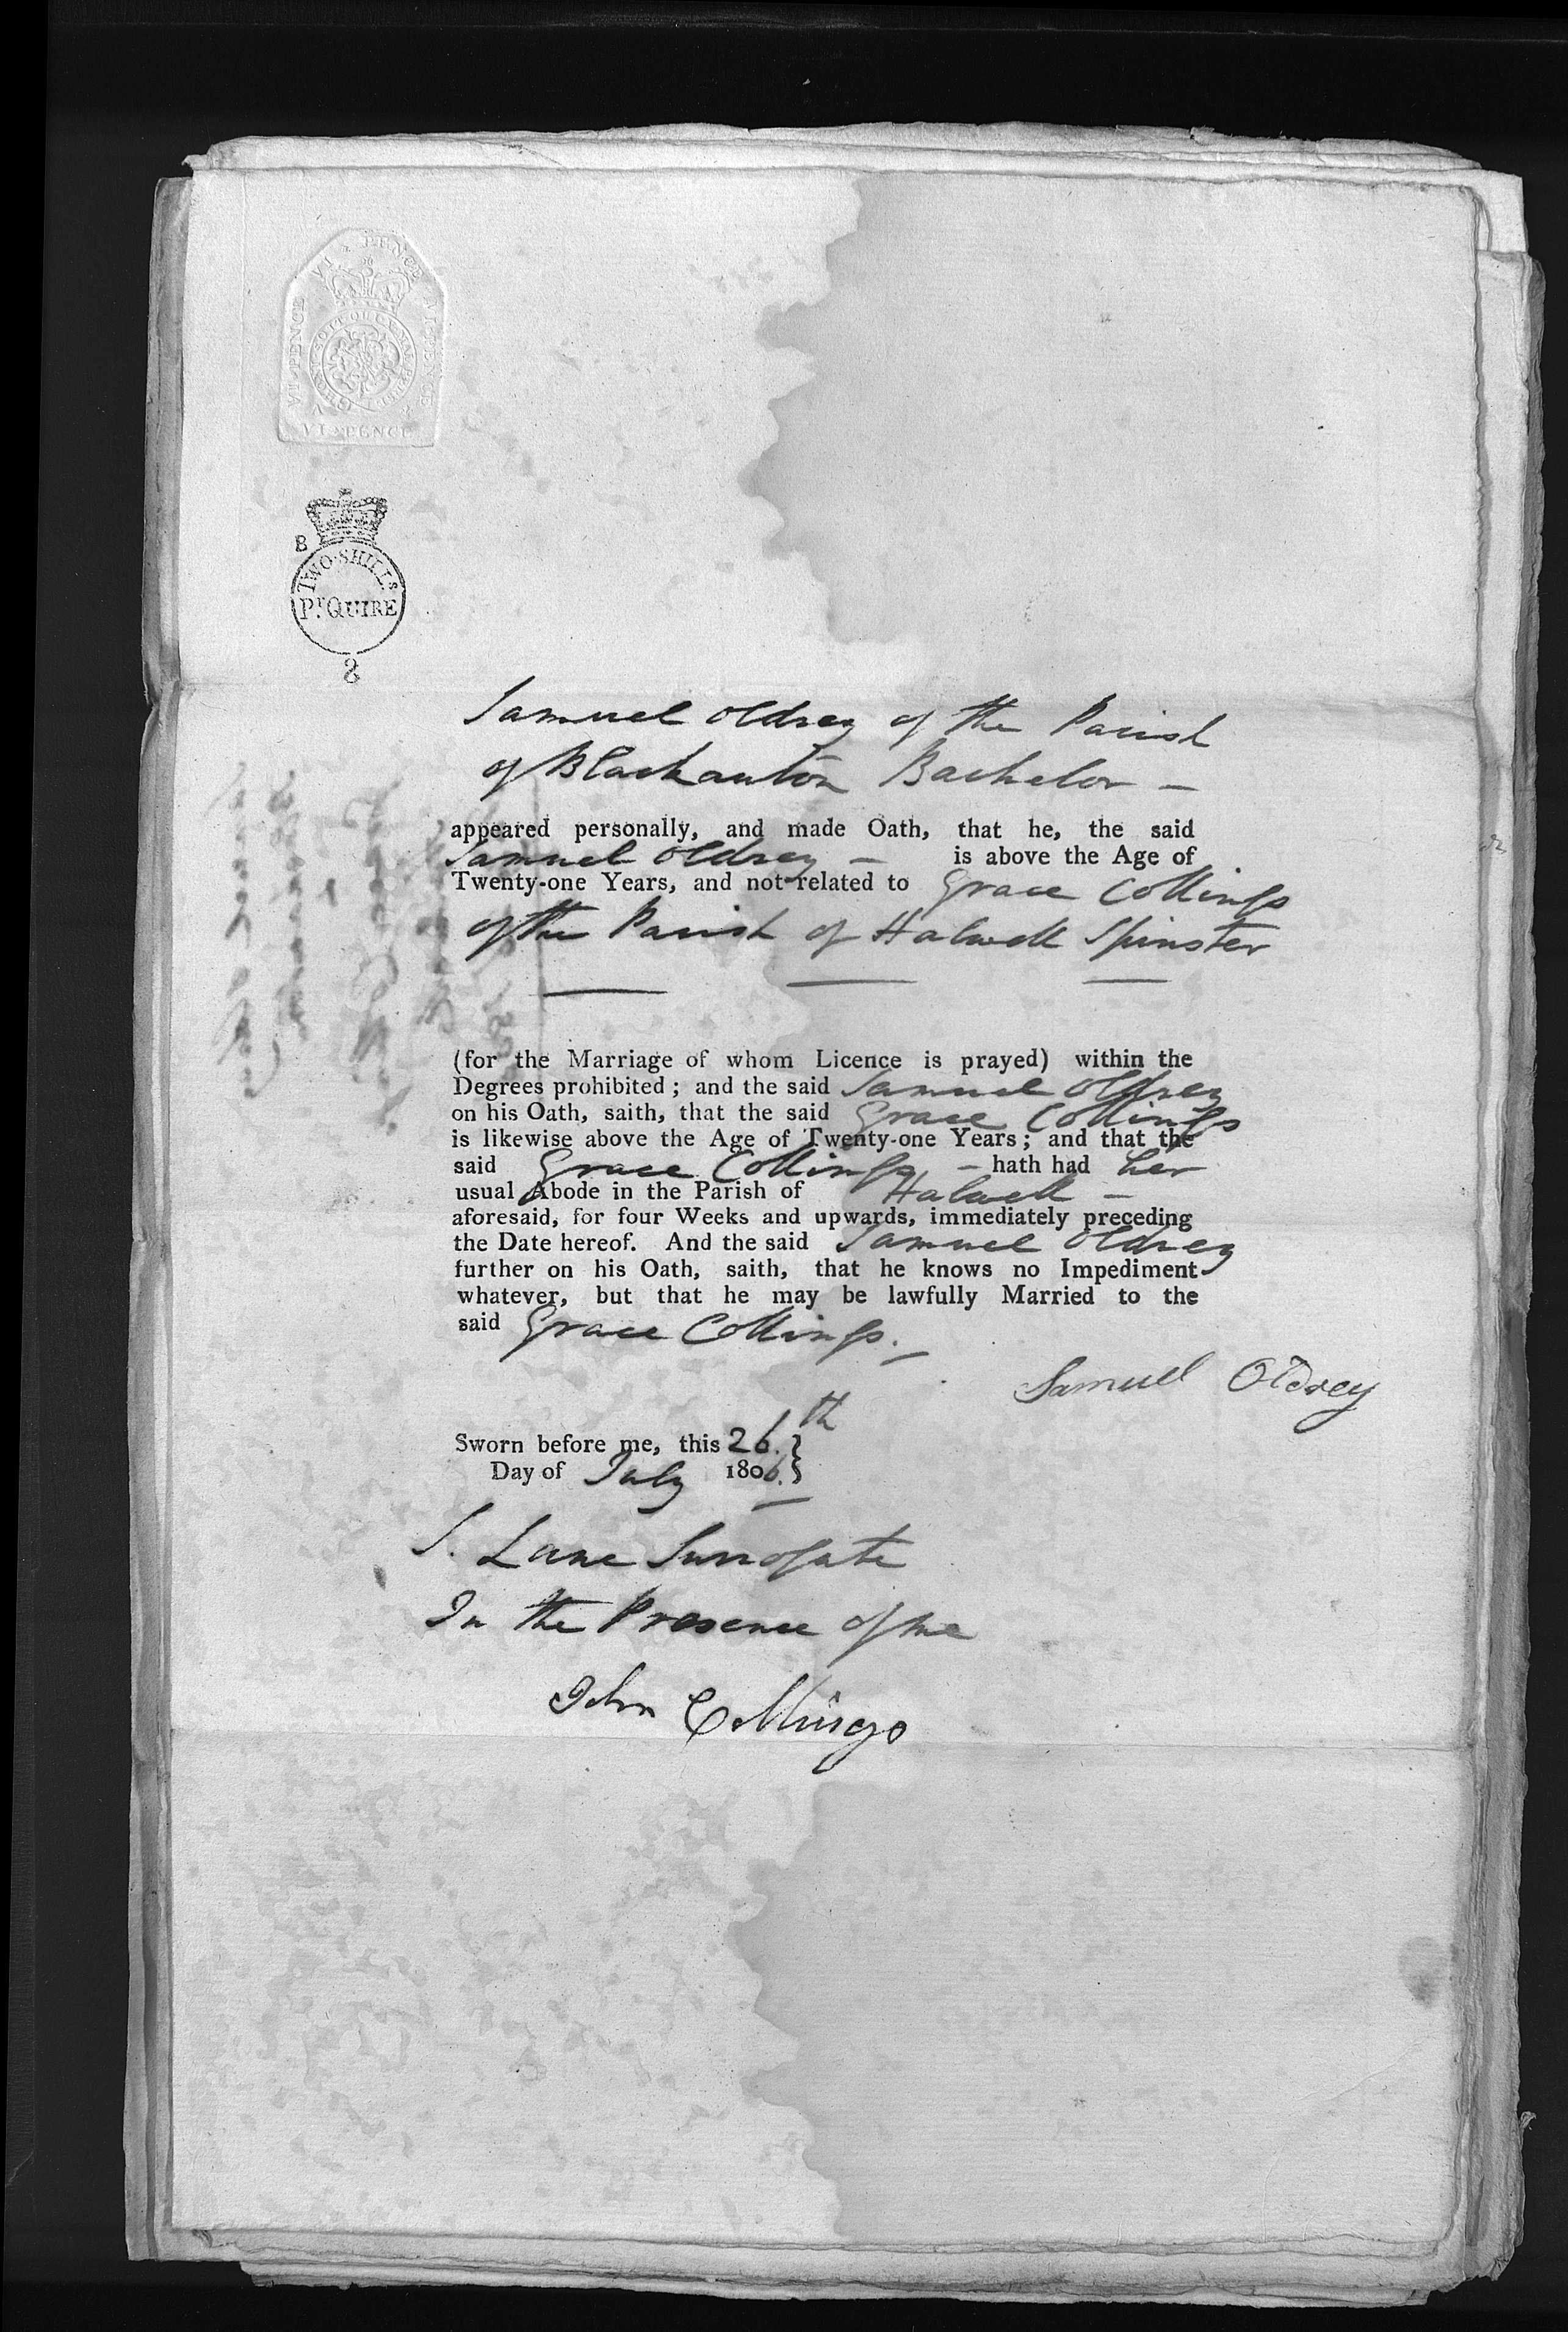 VI PENCE VI PENCE VI PENCE
VI PENCE
B
TWO·SHILLs
Pr QUIRE
8
Samuel Oldrey of the Parish
of Blackauton Bachelor —
appeared personally, and made Oath, that he, the said
Samuel Oldrey — is above the Age of
Twenty-one Years, and not related to Grace Collings
of the Parish of Halwell Spinster
(for the Marriage of whom Licence is prayed) within the
Degrees prohibited; and the said Samuel Oldrey
on his Oath, saith, that the said Grace Collings
is likewise above the Age of Twenty-one Years; and that the
said Grace Collings — hath had her
usual Abode in the Parish of Halwell —
aforesaid, for four Weeks and upwards, immediately preceding
the Date hereof. And the said Samuel Oldrey
further on his Oath, saith, that he knows no Impediment
whatever, but that he may be lawfully Married to the
said Grace Collings. —
Samuel Oldrey
Sworn before me, this 26.th
Day of July 1806.
S. Lane Surrogate
In the Presence of me
John Collings